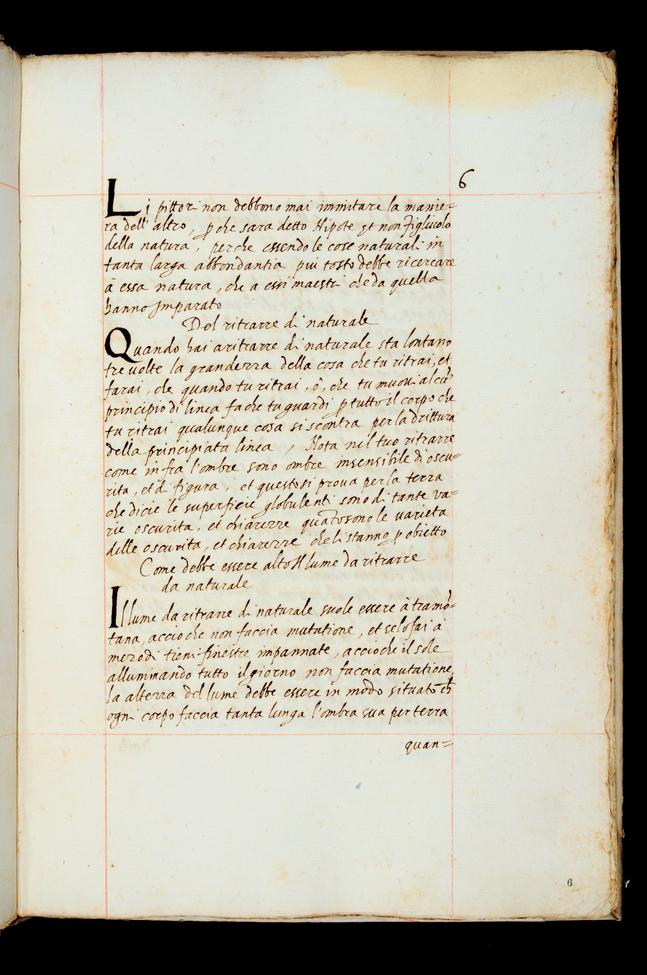 6
Li pittori non debbono mai immitare la manie=
ra dell'altro, p che sara detto Nipote, et non figliuolo
della natura, perche essendo le cose naturali in
tanta larga abbondantia piu tosto debbe ricercare
à essa natura, che a essi maestri che da quella
hanno Imparato
Del ritrarre di naturale
Quando hai aritrarre di naturale sta lontano
tre volte la grandezza della cosa che tu ritrai, et
farai, che quando tu ritrai, ò, che tu muovi alcũ
principio di linea fa che tu guardi p tutto il corpo che
tu ritrai qualunque cosa si scontra per la drittura
della principiata linea, Nota nel tuo ritrarre
come infra l'ombre sono ombre insensibile di oscu=
rita, et di figura, et questo si prova per la terza
che dicie le superficie globulenti sono di tante va=
rie oscurita, et chiarezze quanto sono le varieta
delle oscurita, et chiarezze che li stanno p obietto
Come debbe essere alto Il lume da ritrarre
da naturale
Il lume da ritrarre di naturale suole essere à tramõ=
tana, accioche non faccia mutatione, et se lo fai à
mezodi tieni finestre impannate, accioche il sole
allummando tutto il giorno non faccia mutatione,
la altezza del lume debbe essere in modo situato ch
ogni corpo faccia tanta lunga l'ombra sua per terra
quan=
6